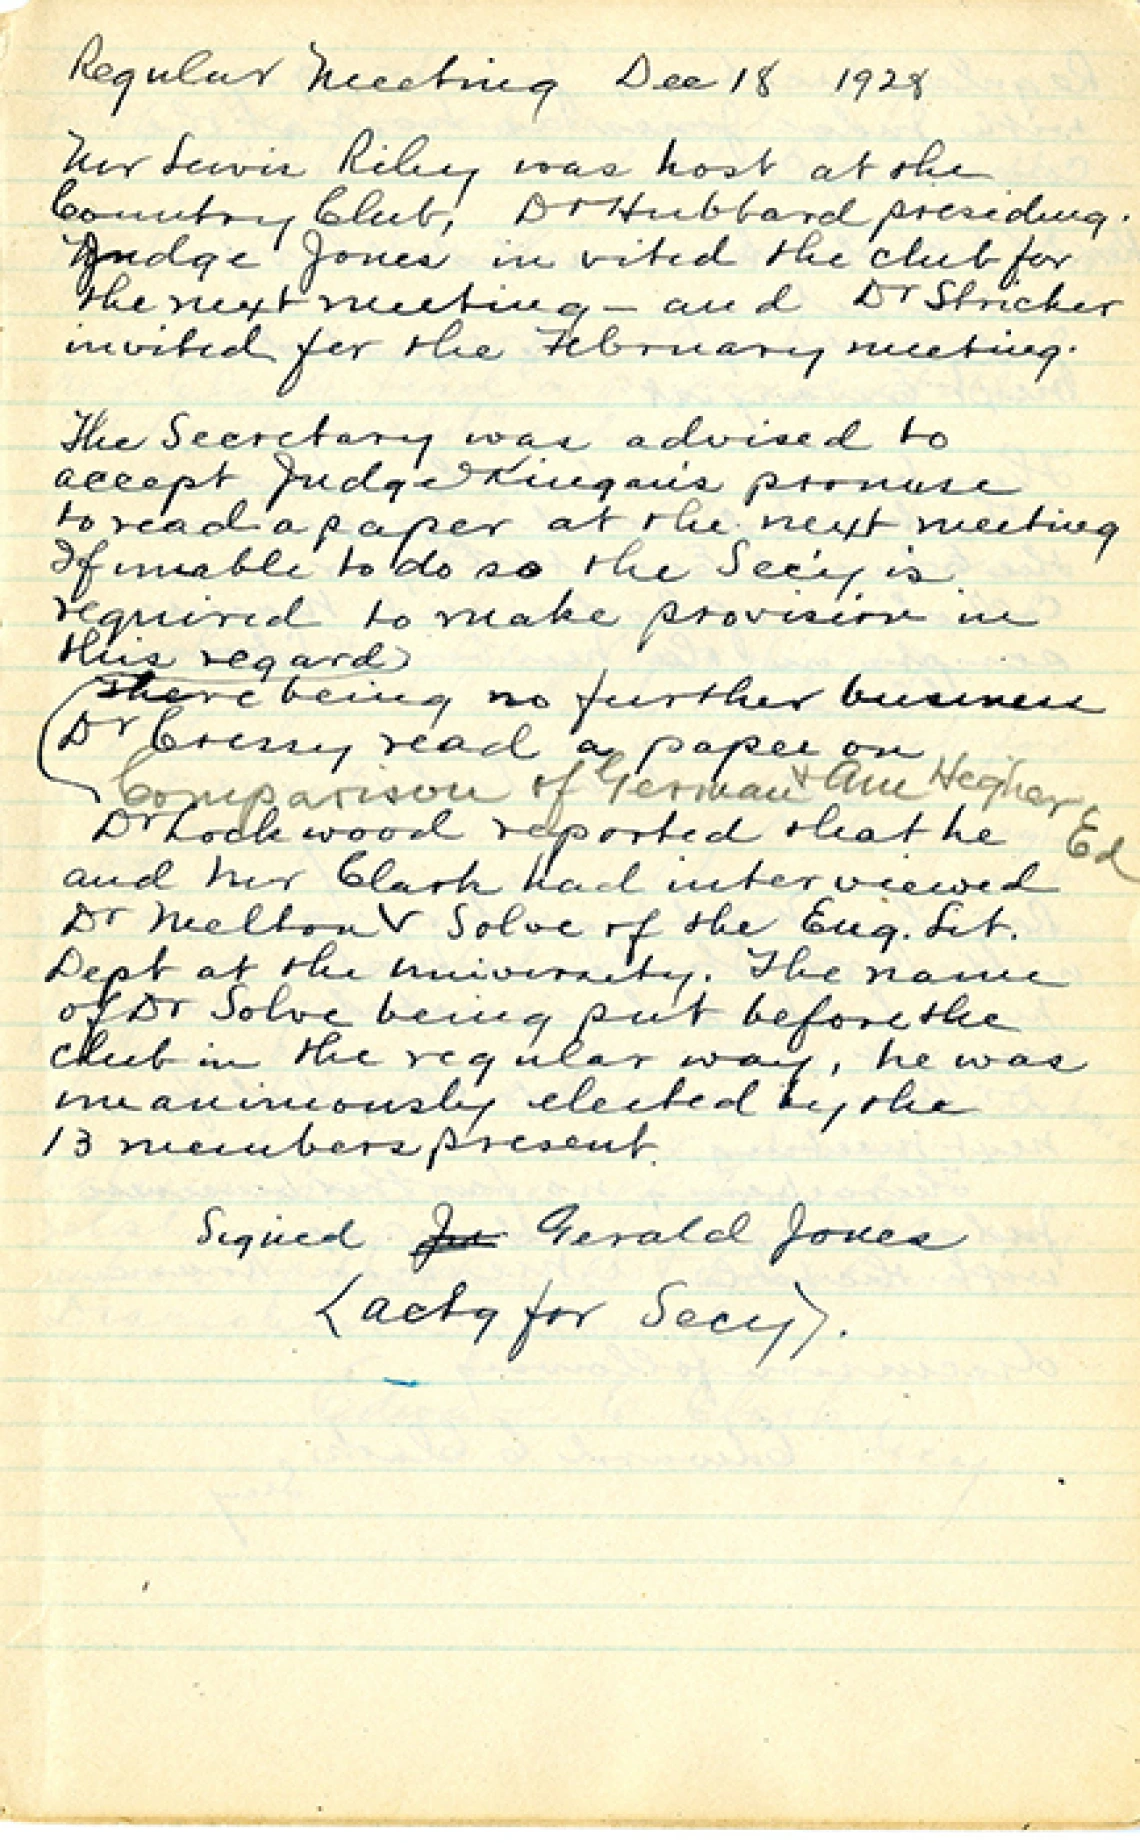 Regular Meeting Dec 18 1928
Mr Lewis Riley was host at the
Country Club, Dr Hubbard presiding.
Judge Jones in vited the club for
the next meeting – and Dr Stricker
invited for the February meeting.
The Secretary was advised to
accept Judge Kingan's promise
to read a paper at the next meeting
If unable to do so the Sec'y is
required to make provision in
this regard
there being no further business
Dr Cressy read a paper on
Comparison of German & Am Higher
Ed
Dr Lockwood reported that he
and Mr Clark had interviewed
Dr Melton V Solve of the Eng. Lit.
Dept at the University. The name
of Dr Solve being put before the
club in the regular way, he was
unanimously elected by the
13 members present.
Signed Gerald Jones
(actg for Secy).